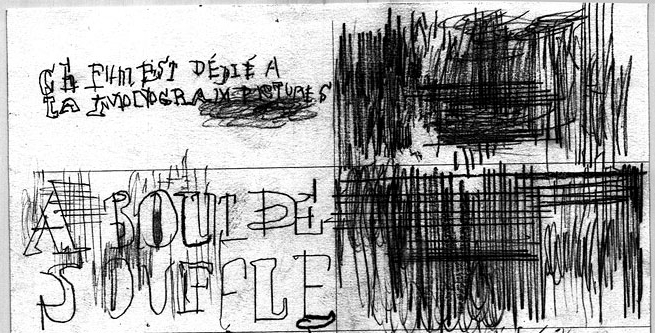 CE FILM EST DÉDIÉ A
LA MONOGRAM PICTURES
A BOUT DE
SOUFFLE